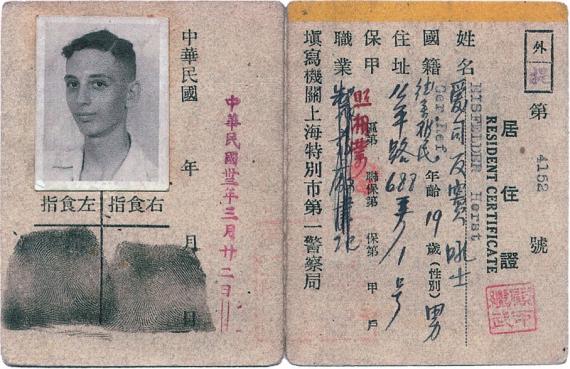 外
第 4152 號
居住證
RESIDENT CERTIFICATE
姓名 EISFELDER Horst
國籍 Ger.Ref 年齡 19 歲 (性別) 男
住址 公平路 弄 1 号
保甲 區第 聯保第 保第 甲 戶
照相業
職業
填寫機關上海特別市第一警察局
中華民國 年 月 日
中華民國卅三年三月廿二日
右食指
左食指